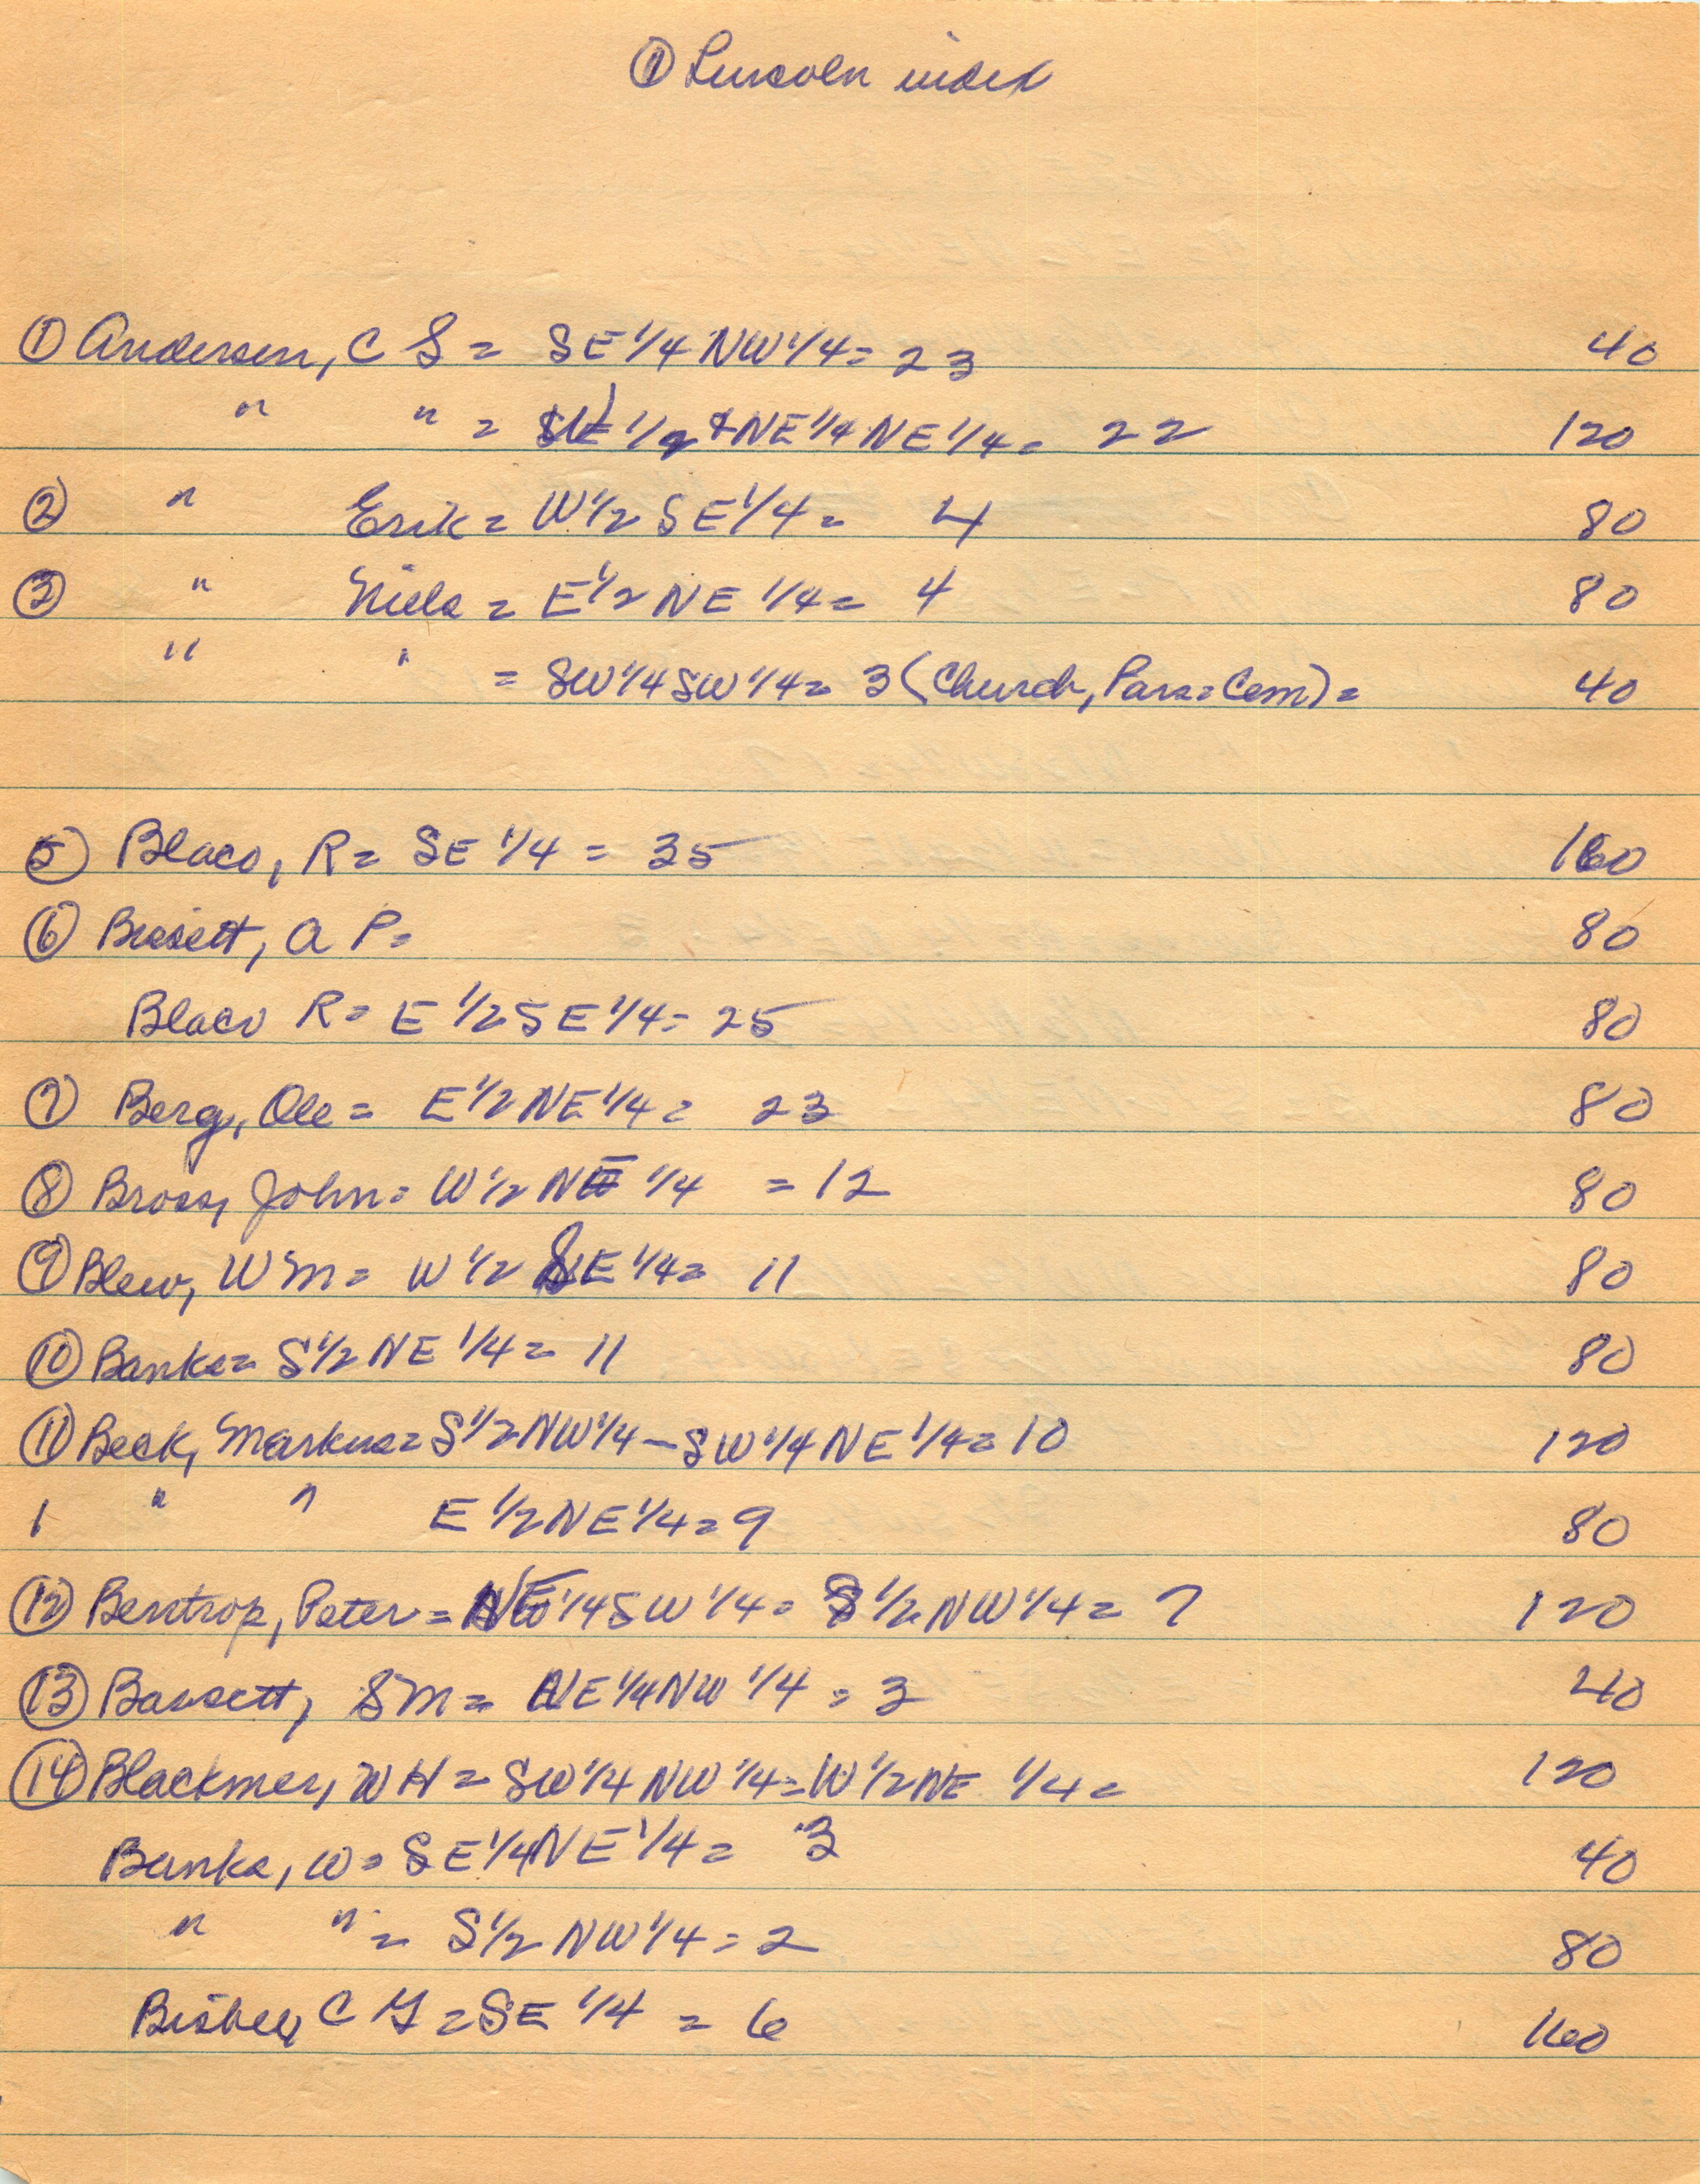 ① Lincoln index
① Andersen, C S = SE 1/4 NW 1/4 = 23 40
" " = 1/2 + NE 1/4 NE 1/4 = 22 120
② " Erik = W 1/2 SE 1/4 = 4 80
③ " Niels = E 1/2 NE 1/4 = 4 80
" " = SW 1/4 SW 1/4 = 3 (Church, Pars = Cem) = 40
⑤ Blaco, R = SE 1/4 = 35 160
⑥ Bassett, A P = 80
Blaco R = E 1/2 SE 1/4 = 25 80
⑦ Berg, Ole = E 1/2 NE 1/4 = 23 80
⑧ Bross, John = W 1/2 NE 1/4 = 12 80
⑨ Blew, Wm = W 1/2 SE 1/4 = 11 80
⑩ Banks = S 1/2 NE 1/4 = 11 80
⑪ Beck, Markus = S 1/2 NW 1/4 - SW 1/4 NE 1/4 = 10 120
1 " " E 1/2 NE 1/4 = 9 80
⑫ Bentrop, Peter = NE 1/4 SW 1/4 = S 1/2 NW 1/4 = 7 120
⑬ Bassett, S M = NE 1/4 NW 1/4 = 3 40
⑭ Blackmer, W H = SW 1/4 NW 1/4 = W 1/2 NE 1/4 = 120
Banks, W = SE 1/4 NE 1/4 = 3 40
" " = S 1/2 NW 1/4 = 2 80
Bisbey, C G = SE 1/4 = 6 160